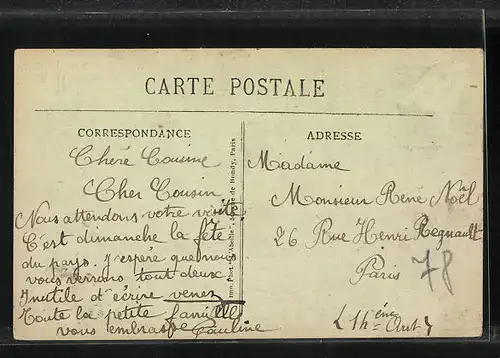 CARTE POSTALE
CORRESPONDANCE
Chère Cousine
Cher Cousin
Nous attendons votre visite
C'est dimanche la fête
du pays. J'espere que nous
vous verrons tout deux
Inutile d'écrire venez
Toute la petite famille
vous embrasse Pauline
de Bondy, Paris
ADRESSE
Madame
Monsieur René Noël
26 Rue Henri Regnault
Paris
78